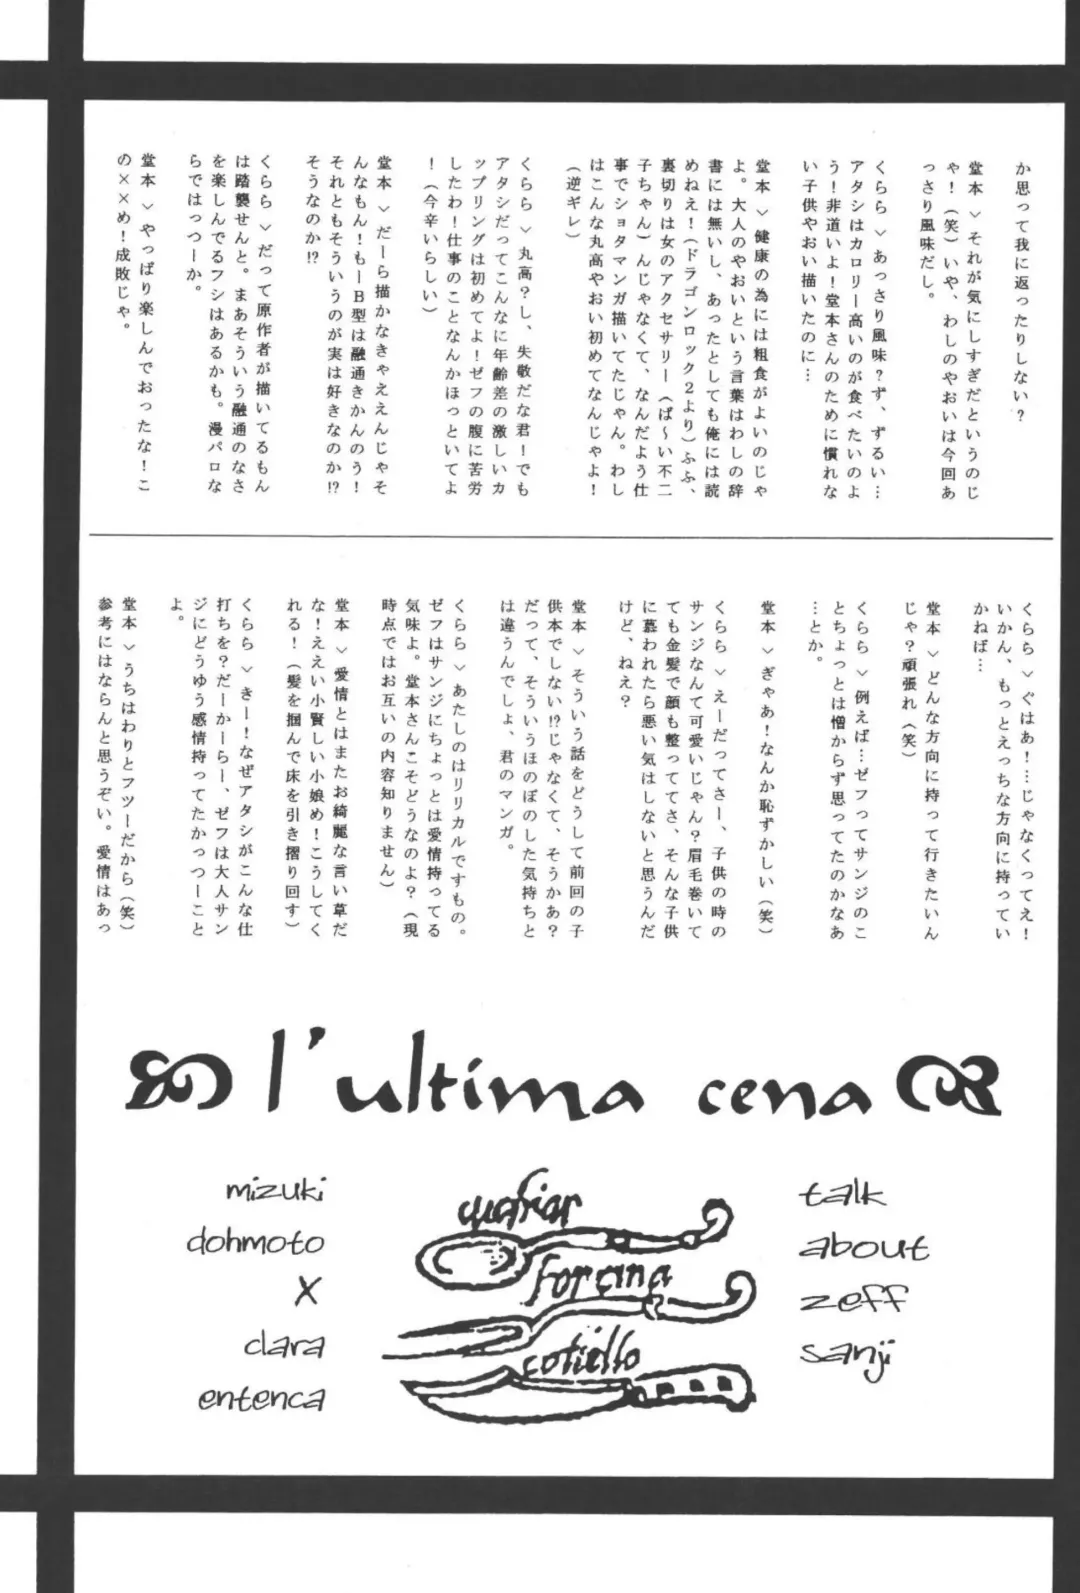 か思って我に返ったりしない？
堂本＞それが気にしすぎだというのじ
ゃ！（笑）いや、わしのやおいは今回あ
っさり風味だし。
くらら＞あっさり風味？ず、ずるい…
アタシはカロリー高いのが食べたいのよ
う！非道いよ！堂本さんのために慣れな
い子供やおい描いたのに…
堂本＞健康の為には粗食がよいのじゃ
よ。大人のやおいという言葉はわしの辞
書には無いし、あったとしても俺には読
めねえ！（ドラゴンロック２より）ふふ、
裏切りは女のアクセサリー（ば〜い不二
子ちゃん）んじゃなくて、なんだよう仕
事でショタマンガ描いてたじゃん。わし
はこんな丸高やおい初めてなんじゃよ！
（逆ギレ）
くらら＞丸高？し、失敬だな君！でも
アタシだってこんなに年齢差の激しいカ
ップリングは初めてよ！ゼフの腹に苦労
したわ！仕事のことなんかほっといてよ
！（今辛いらしい）
堂本＞だーら描かなきゃええんじゃそ
んなもん！もーＢ型は融通きかんのう！
それともそういうのが実は好きなのか!?
そうなのか!?
くらら＞だって原作者が描いてるもん
は踏襲せんと。まあそういう融通のなさ
を楽しんでるフシはあるかも。漫パロな
らではっつーか。
堂本＞やっぱり楽しんでおったな！こ
の××め！成敗じゃ。
くらら＞ぐはあ！…じゃなくってえ！
いかん、もっとえっちな方向に持ってい
かねば…
堂本＞どんな方向に持って行きたいん
じゃ？頑張れ（笑）
くらら＞例えば…ゼフってサンジのこ
とちょっとは憎からず思ってたのかなあ
…とか。
堂本＞ぎゃあ！なんか恥ずかしい（笑）
くらら＞えーだってさー、子供の時の
サンジなんて可愛いじゃん？眉毛巻いて
ても金髪で顔も整っててさ、そんな子供
に慕われたら悪い気はしないと思うんだ
けど、ねえ？
堂本＞そういう話をどうして前回の子
供本でしない!?じゃなくて、そうかあ？
だって、そういうほのぼのした気持ちと
は違うんでしょ、君のマンガ。
くらら＞あたしのはリリカルですもの。
ゼフはサンジにちょっとは愛情持ってる
気味よ。堂本さんこそどうなのよ？（現
時点ではお互いの内容知りません）
堂本＞愛情とはまたお綺麗な言い草だ
な！ええい小賢しい小娘め！こうしてく
れる！（髪を掴んで床を引き摺り回す）
くらら＞きー！なぜアタシがこんな仕
打ちを？だーかーらー、ゼフは大人サン
ジにどうゆう感情持ってたかっつーこと
よ。
堂本＞うちはわりとフツーだから（笑）
参考にはならんと思うぞい。愛情はあっ
l'ultima cena
mizuki
dohmoto
X
clara
entenca
forcina
coltello
talk
about
zeff
sanji